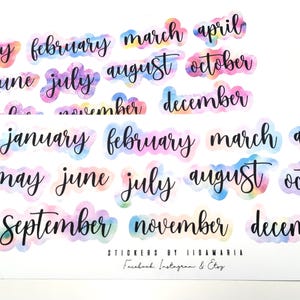 february march april
june july august october
november december
january february march
may june july august
September november
STICKERS BY IIDAMARIA
Facebook Instagram & Etsy